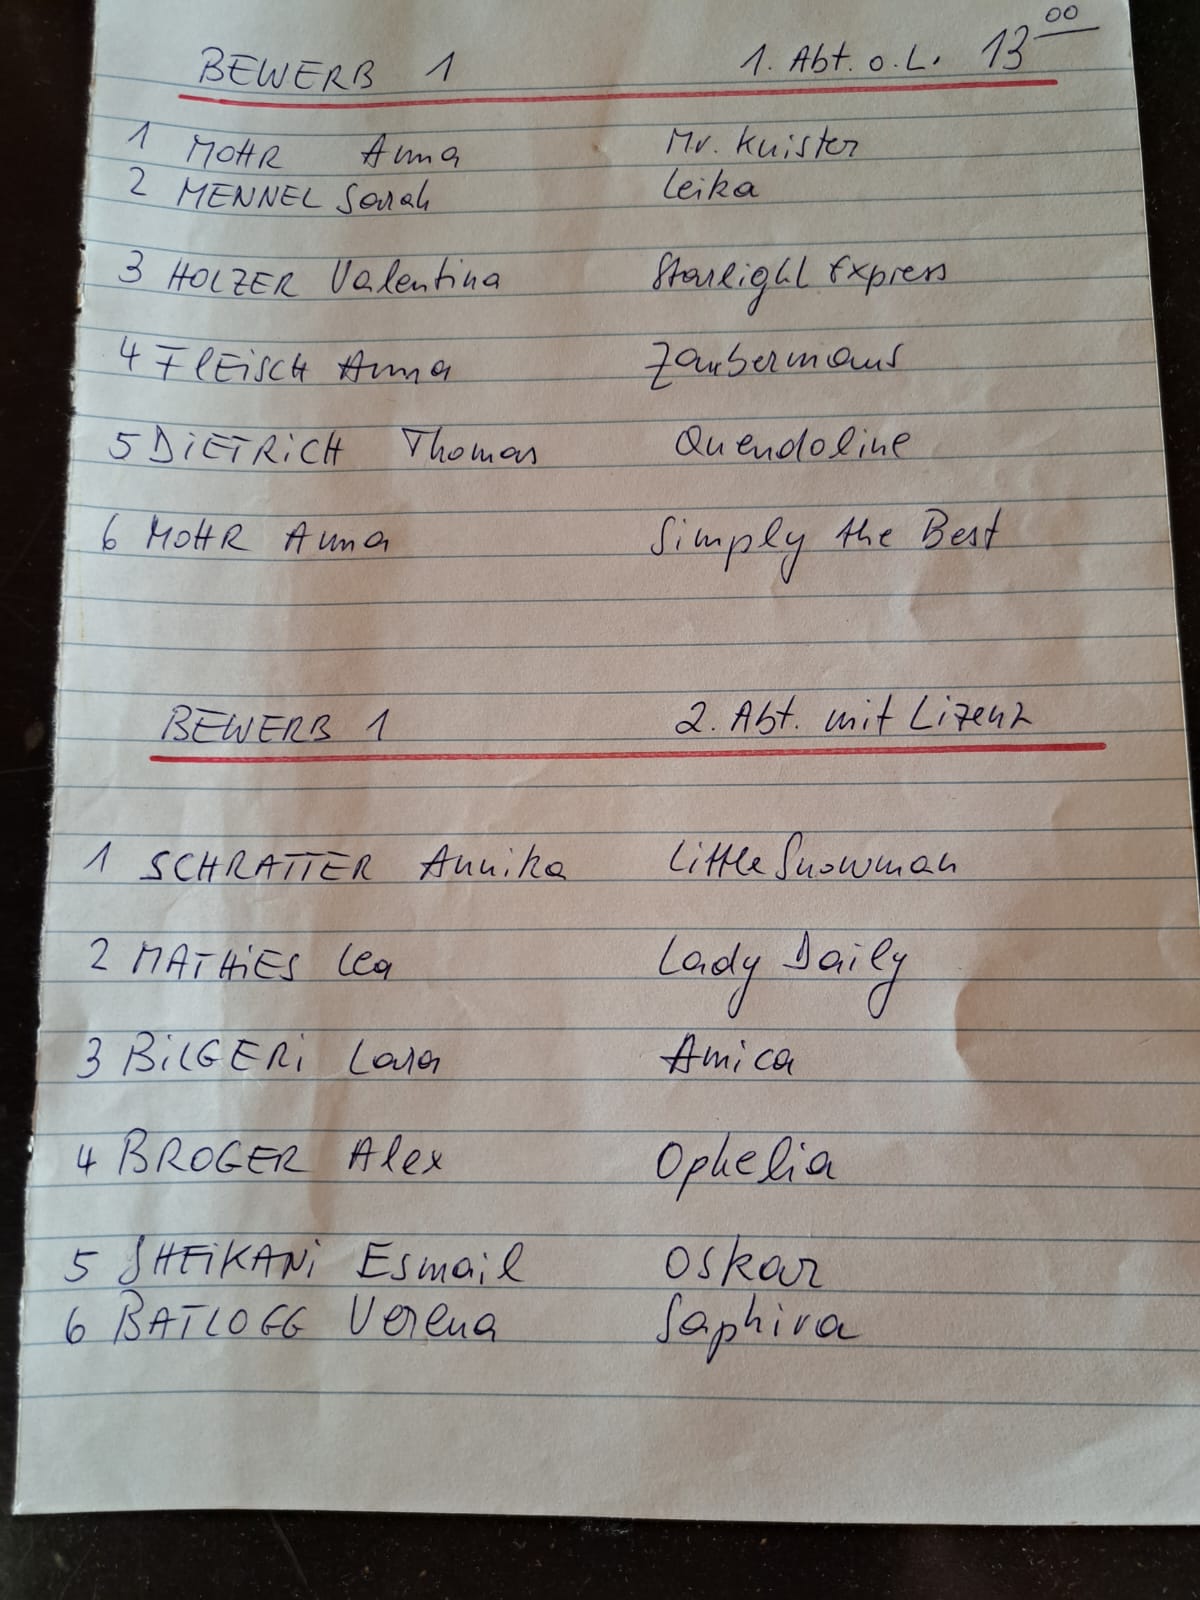 BEWERB 1 1. Abt. o. L. 13 00
1 MOHR Anna Mr. Knister
2 MENNEL Sarah Leika
3 HOLZER Valentina Starlight Express
4 FLEISCH Anna Zaubermaus
5 DIETRICH Thomas Quendoline
6 MOHR Anna Simply the Best
BEWERB 1 2. Abt. mit Lizenz
1 SCHRATTER Annika Little Snowman
2 MATHIES Lea Lady Daily
3 BILGERI Lara Amica
4 BROGER Alex Ophelia
5 SHEIKANI Esmail Oskar
6 BATLOGG Verena Saphira